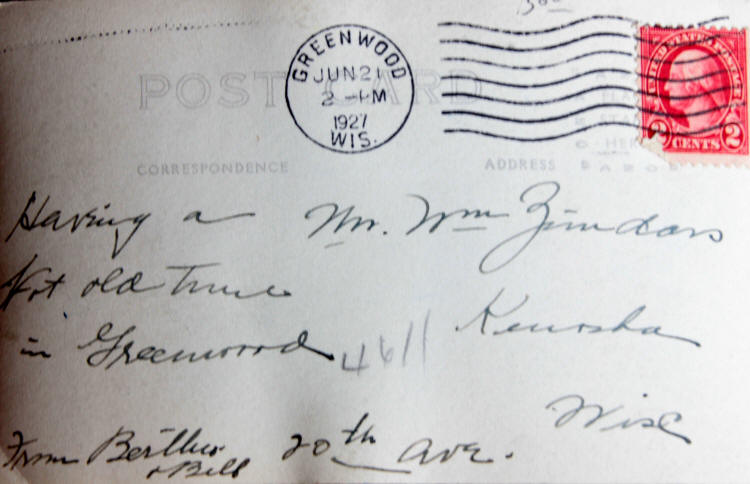 GREENWOOD
JUN 21
2 -PM
1927
WIS.
UNITED STATES POSTAGE
2 CENTS 2
POST CARD
CORRESPONDENCE
ADDRESS
Having a
Hot old time
in Greenwood
From Bertha
+ Bill
Mr. Wm Zindars
Kenosha
Wisc
4611
20th Ave.